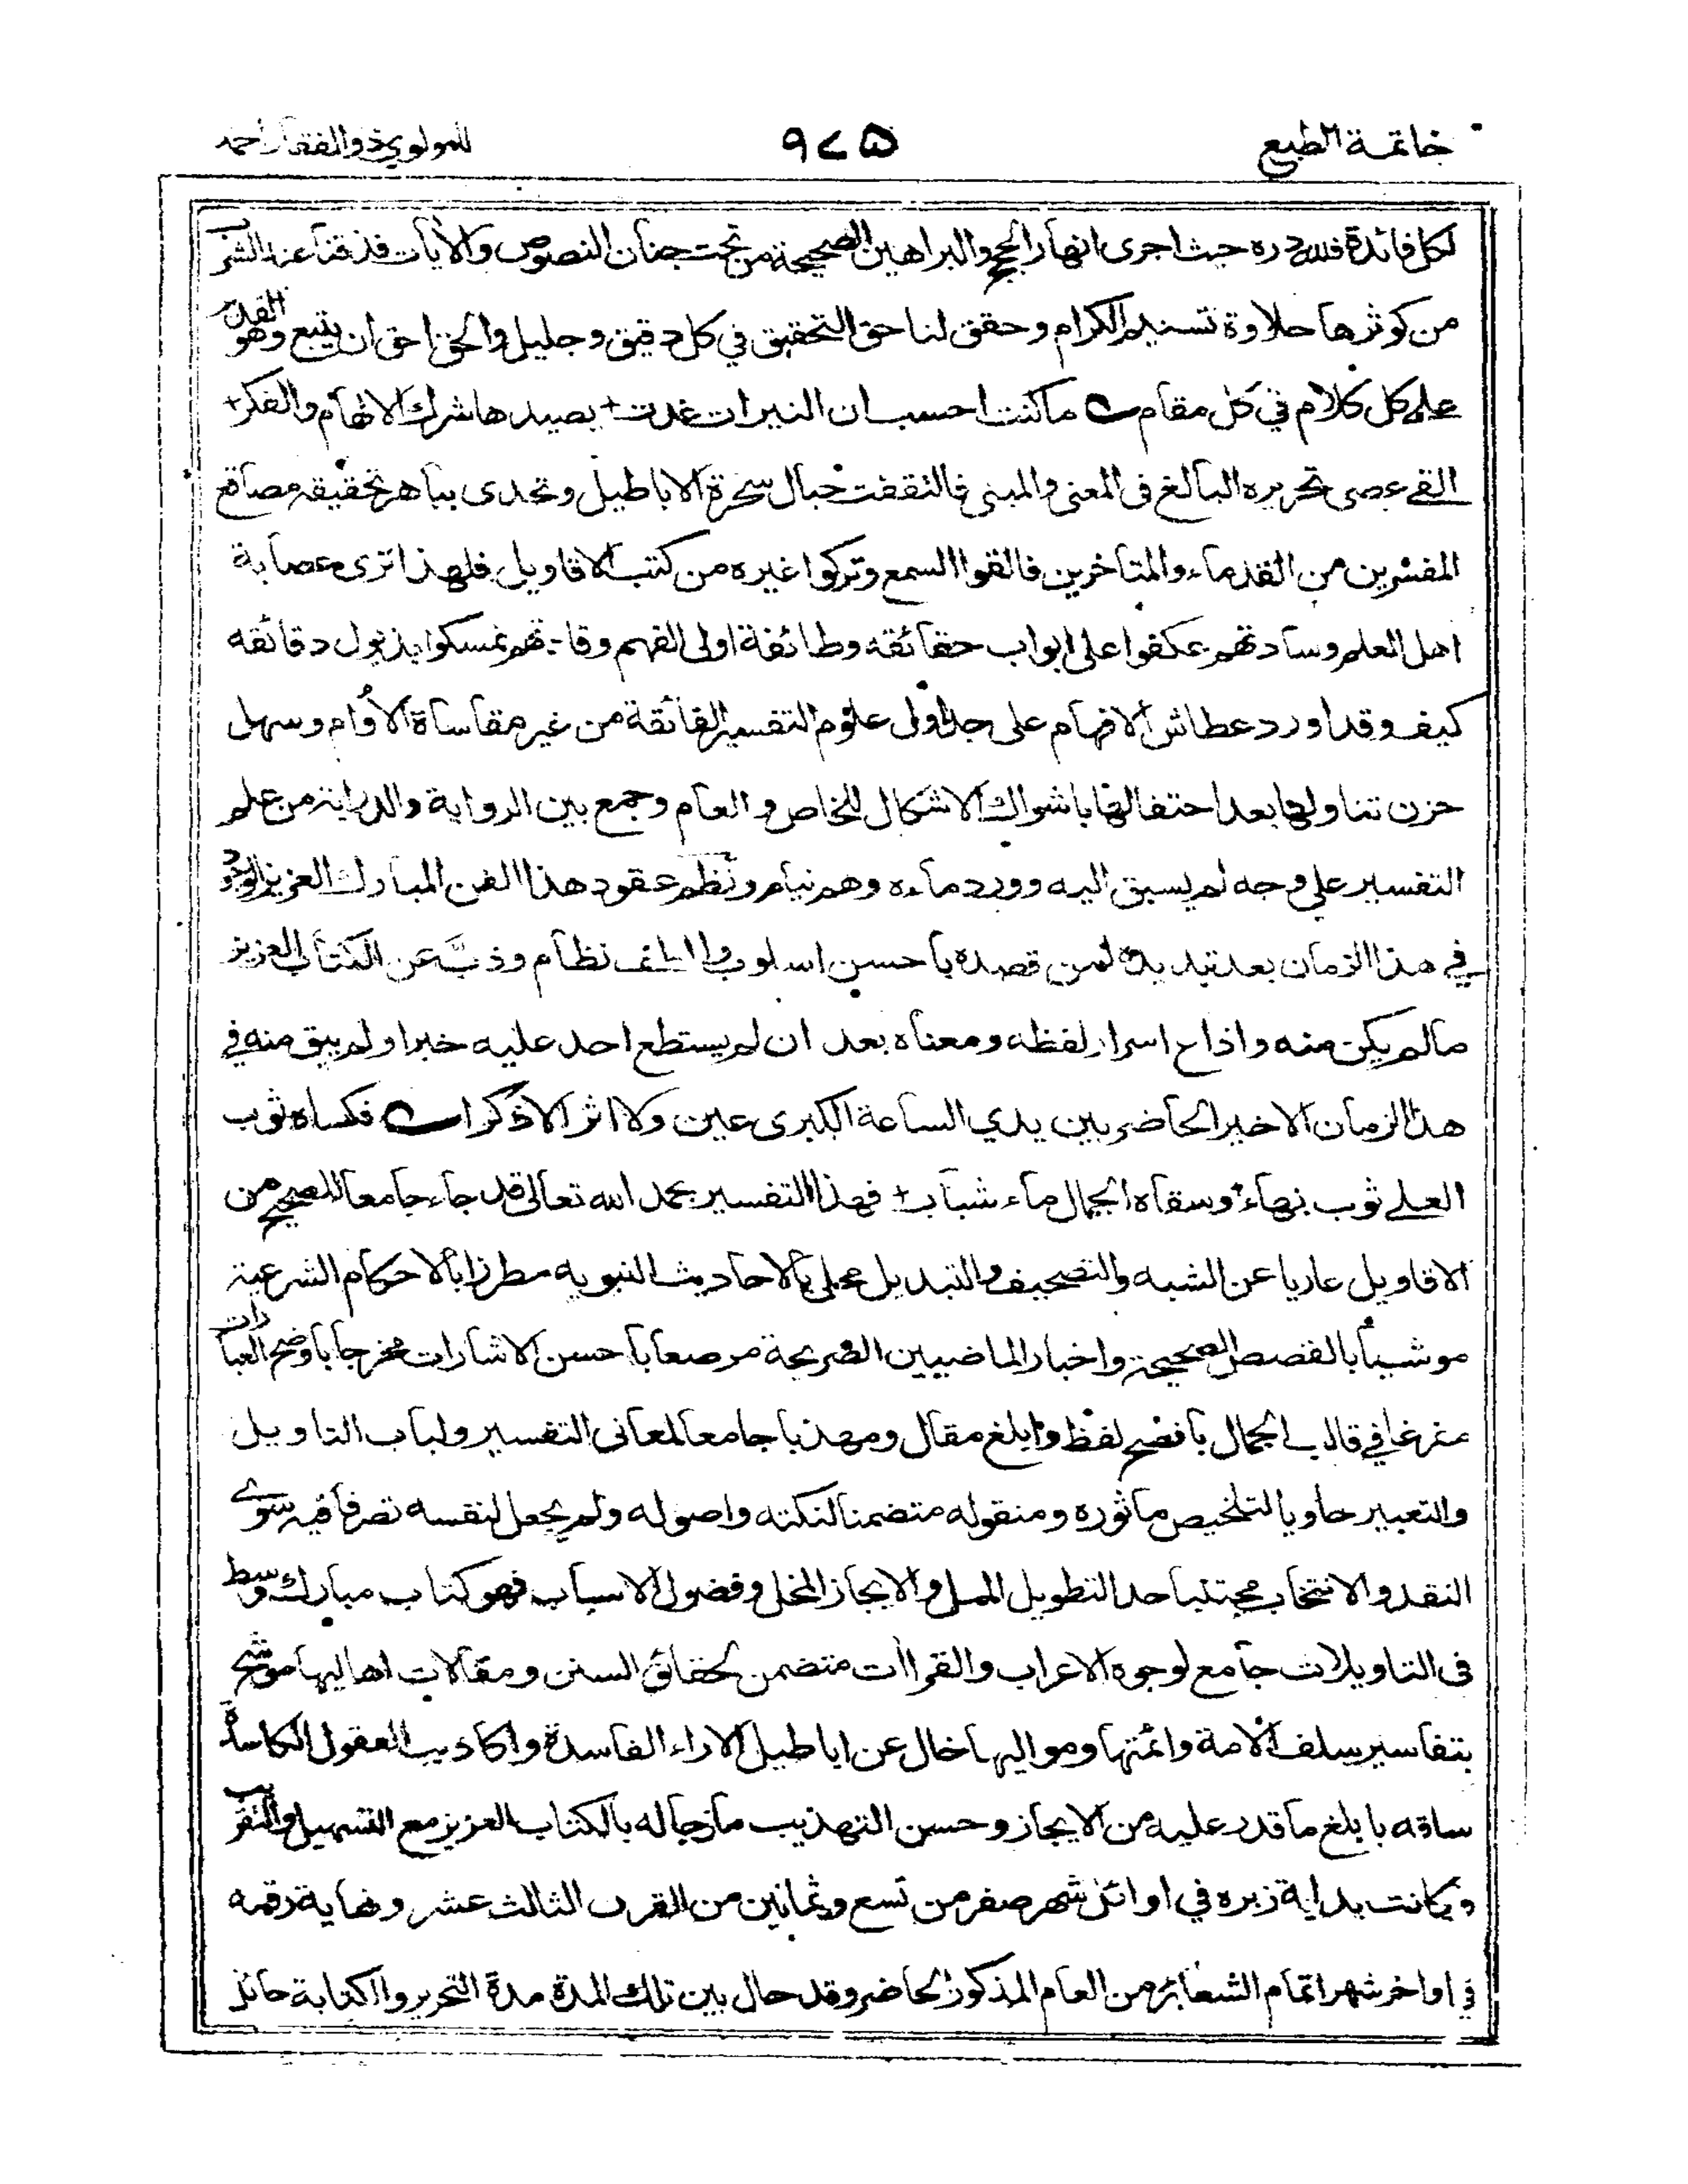 خاتمة الطبع
٩٧٥
للمولوي ذو الفقار احمد
لكل فائدة فلله دره حيث اجرى انهار الحجج والبراهين الصحيحة من تحت جنان النصوص والأيات فذقنا عند الشرب
من كوثرها حلاوة تسنيم الكرام وحقق لنا حق التحقيق في كل دقيق وجليل والحق احق ان يتبع وهو
على كل كلام في كل مقام ؎ ما كنت احسب ان النيرات غدت + يصيدها شرك الافهام والفكر +
القى عصى تحريره البالغ فى المعنى والمبنى فالتقفت حبال سحرة الاباطيل وتحدى بباهر تحقيقه مصاقع
المفسرين من القدماء والمتأخرين فالقوا السمع وتركوا غيره من كتب الاقاويل فلهذا ترى عصابة
اهل العلم وسادتهم عكفوا على ابواب حقائقه وطائفة اولى الفهم وقادتهم تمسكوا بذيول دقائقه
كيف وقد اورد عطاش الافهام على جداول علوم التفسير الفائقة من غير مقاساة الأوام وسهل
حزن تناولها بعد احتفالها باشواك الاشكال للخاص والعام وجمع بين الرواية والدراية من علم
التفسير على وجه لم يسبق اليه وورد ماءه وهم نيام ونظم عقود هذا الفن المبارك العزيز الوجود
في هذا الزمان بعد تبديده لمن قصده بأحسن اسلوب والطف نظام وذبَّ عن الكتاب العزيز
مالم يكن منه واذاع اسرار لفظه ومعناه بعد ان لم يستطع احد عليه خبرا ولم يبق منه في
هذا الزمان الاخير الحاضر بين يدي الساعة الكبرى عين ولا اثر الا ذكرا ؎ فكساه ثوب
العلى ثوب بهاء + وسقاه الجمال ماء شباب + فهذا التفسير بحمد الله تعالى قد جاء جامعا للصحيح من
الاقاويل عاريا عن الشبه والتصحيف والتبديل محلى بالاحاديث النبويه مطرزا بالاحكام الشرعية
موشيا بالقصص الصحيحة واخبار الماضيين الصريحة مرصعا بأحسن الاشارات مخرجا بأوضح العبارات
مفرغا في قالب الجمال بأفصح لفظ وابلغ مقال ومهذبا جامعا لمعانى التفسير ولباب التاويل
والتعبير حاويا لتلخيص مأثوره ومنقوله متضمنا لنكته واصوله ولم يجعل لنفسه تصرفا فيه سوى
النقد والانتخاب مجتنبا حد التطويل الممل والايجاز المخل وفضول الاسباب فهو كتاب مبارك وسط
فى التاويلات جامع لوجوه الاعراب والقراأت متضمن لحقائق السنن ومقالات اهاليها موشح
بتفاسير سلف الامة وائمتها ومواليها خال عن اباطيل الاراء الفاسدة واكاذيب العقول الكاسدة
ساقه بابلغ ما قدر عليه من الايجاز وحسن التهذيب مازجا له بالكتاب العزيز مع التسهيل والتقريب
وكانت بداية زبره في اوائل شهر صفر من تسع وثمانين من القرن الثالث عشر ونهاية رقمه
في اواخر شهر اتمام الشعائر من العام المذكور الحاضر وقد حال بين تلك المدة مدة التحرير والكتابة حائل